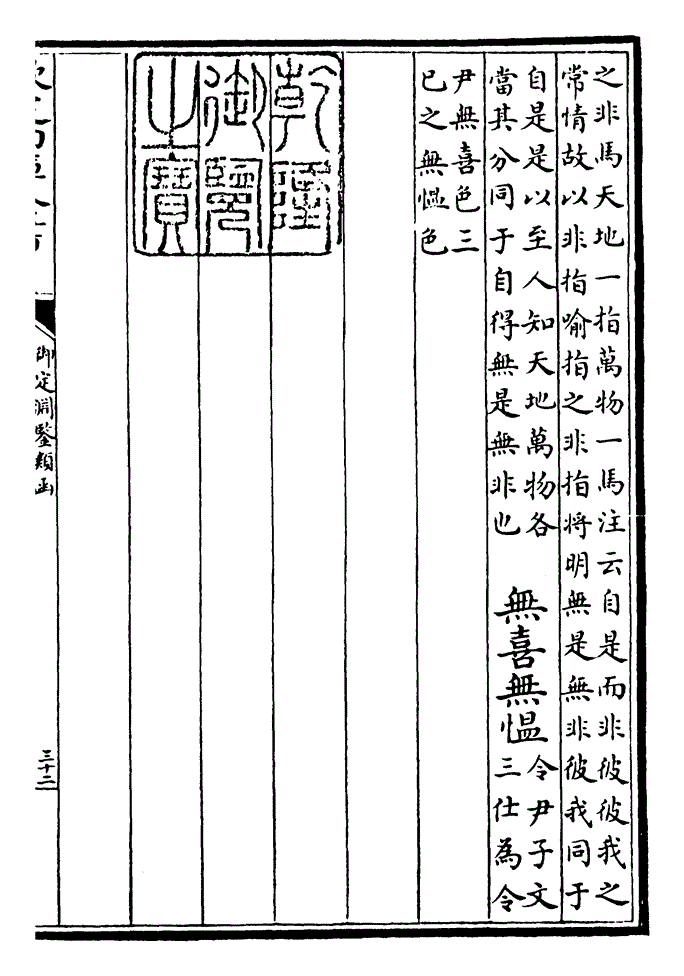 之非馬天地一指萬物一馬注云自是而非彼彼我之
常情故以非指喻指之非指將明無是無非彼我同于
自是是以至人知天地萬物各
當其分同于自得無是無非也
無喜無愠
令尹子文
三仕為令
尹無喜色三
已之無愠色
乾隆
御覽
之寶
御定淵鑒類函
三十二